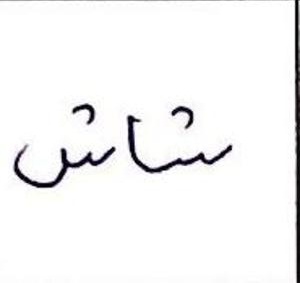 شاش